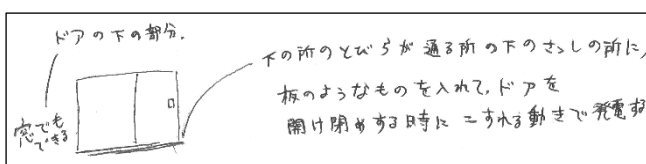 ドアの下の部分.
窓でも
できる
下の所のとびらが通る所の下のさっしの所に、
板のようなものを入れて、ドアを
開け閉めする時にこすれる動きで発電する